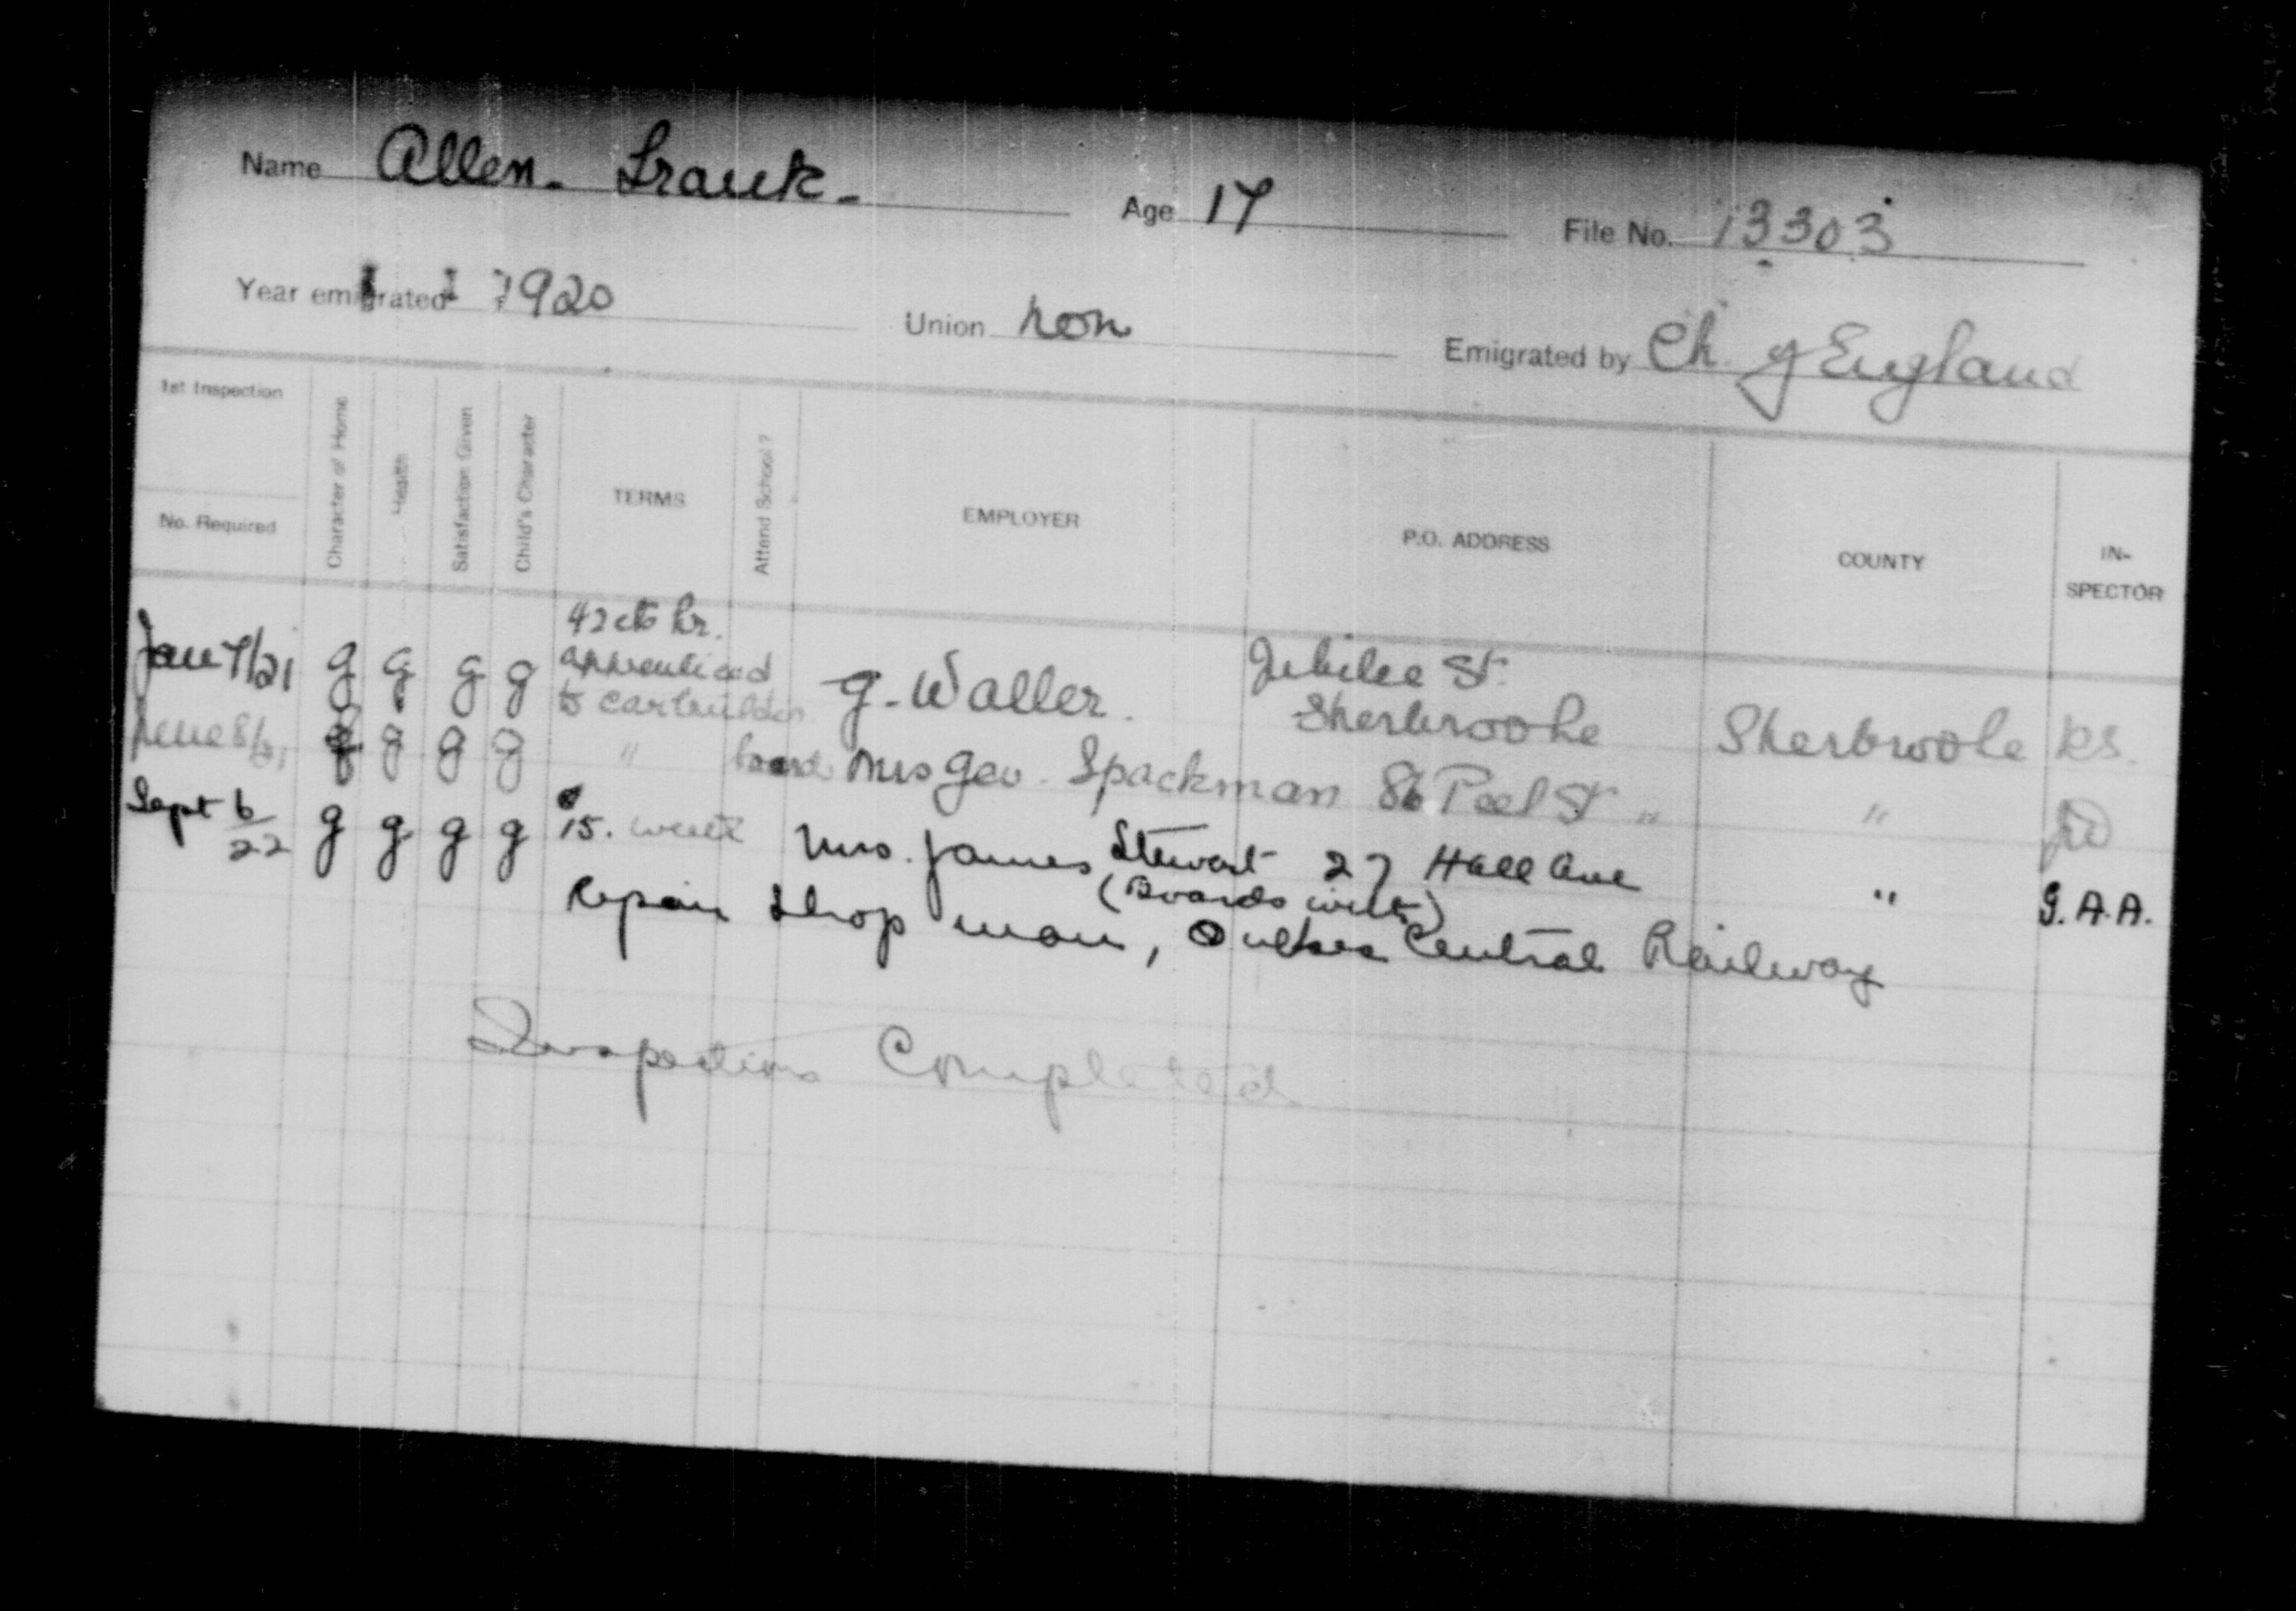 Name Allen. Frank. Age 17 File No. 13303
Year emigrated 1920 Union non Emigrated by Ch of England
1st Inspection
No. Required
Character of Home
Health
Satisfaction Given
Child's Character
TERMS
Attend School?
EMPLOYER
P.O. ADDRESS
COUNTY
IN-
SPECTOR
42 cts hr.
Jan 7/21 g g g g apprenticed G. Waller. Jubilee St.
to carbuilder Sherbrooke Sherbrooke
June 8/21 g g g g " board Mrs Geo. Spackman 86 Peel St " "
Sept 6/22 g g g g $15. week Mrs. James Stewart 27 Hall Ave " G.A.A.
(Boards with)
Repair Shop man, Quebec Central Railway
Inspections Completed